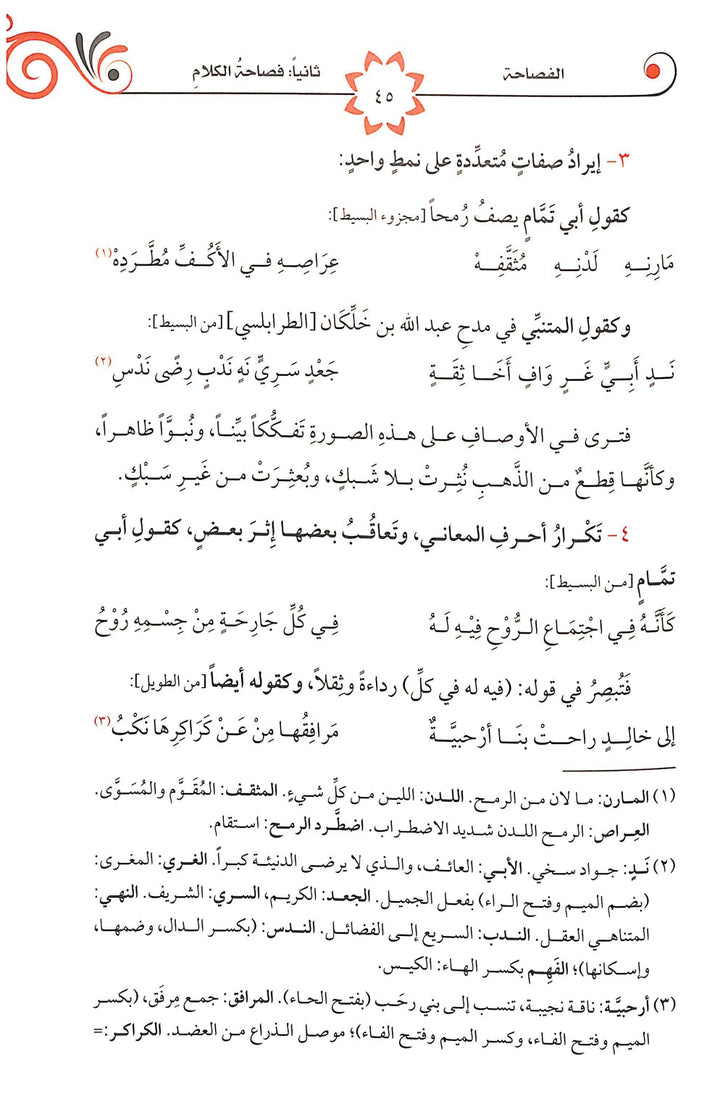 الفصاحة
ثانياً: فصاحةُ الكلامِ
٤٥
٣- إيرادُ صفاتٍ مُتعدِّدةٍ على نمطٍ واحدٍ:
كقولِ أبي تَمَّامٍ يصفُ رُمحاً [مجزوء البسيط]:
مَارِنِـهِ لَدْنِـهِ مُثَقَّفِـهْ عِرَاصِـهِ فـي الأَكُـفِّ مُطَّرِدِهْ(١)
وكقولِ المتنبِّي في مدحِ عبد الله بن خَلِّكَان [الطرابلسي] [من البسيط]:
نَـدٍ أَبِـيٍّ غَـرٍ وَافٍ أَخَـا ثِقَـةٍ جَعْدٍ سَـرِيٍّ نَهٍ نَدْبٍ رِضًى نَدْسِ(٢)
فتـرى فـي الأوصـافِ علـى هـذهِ الصـورةِ تَفـكُّكاً بيِّنـاً، ونُبـوَّاً ظاهـراً،
وكأنَّهـا قِطـعٌ مـن الذَّهبِ نُثِـرتْ بـلا شَـبكٍ، وبُعثِـرَتْ مـن غَيـرِ سَـبْكٍ.
٤- تَكْـرارُ أحـرفِ المعانـي، وتَعاقُـبُ بعضهـا إثـرَ بعـضٍ، كقـولِ أبـي
تمَّـامٍ [مـن البسـيط]:
كَأَنَّهُ فِـي اجْتِمَـاعِ الـرُّوْحِ فِيْـهِ لَـهُ فِـي كُلِّ جَارِحَـةٍ مِنْ جِسْـمِهِ رُوْحُ
فَتُبصِرُ في قوله: (فيه له في كلِّ) رداءةً وثِقلاً، وكقوله أيضاً [من الطويل]:
إلى خالِـدٍ راحـتْ بنَـا أرْحبيَّـةٌ مَرَافِقُهـا مِنْ عَـنْ كَرَاكِرِهَا نَكْبُ(٣)
(١) المـارن: مـا لان مـن الرمـح. اللـدن: الليـن مـن كلِّ شـيءٍ. المثقـف: المُقَـوَّم والمُسَـوَّى.
العِـراص: الرمح اللـدن شـديد الاضطـراب. اضطَّـرد الرمـح: اسـتقام.
(٢) نَـدٍ: جـواد سـخي. الأبـي: العائـف، والـذي لا يرضـى الدنيئـة كبـراً. الغـري: المغـرى:
(بضـم الميـم وفتـح الـراء) بفعـل الجميـل. الجعـد: الكريـم، السـري: الشـريف. النهـي:
المتناهـي العقـل. النـدب: السـريع إلـى الفضائـل. النـدس: (بكسـر الـدال، وضمهـا،
وإسـكانها)؛ الفَهِـم بكسـر الهـاء: الكيـس.
(٣) أرحبيَّـة: ناقـة نجيبـة، تنسـب إلـى بني رحَـب (بفتح الحاء). المرافق: جمـع مِرفَق، (بكسـر
الميـم وفتـح الفـاء، وكسـر الميـم وفتح الفـاء)؛ موصـل الـذراع مـن العضـد. الكراكـر:=